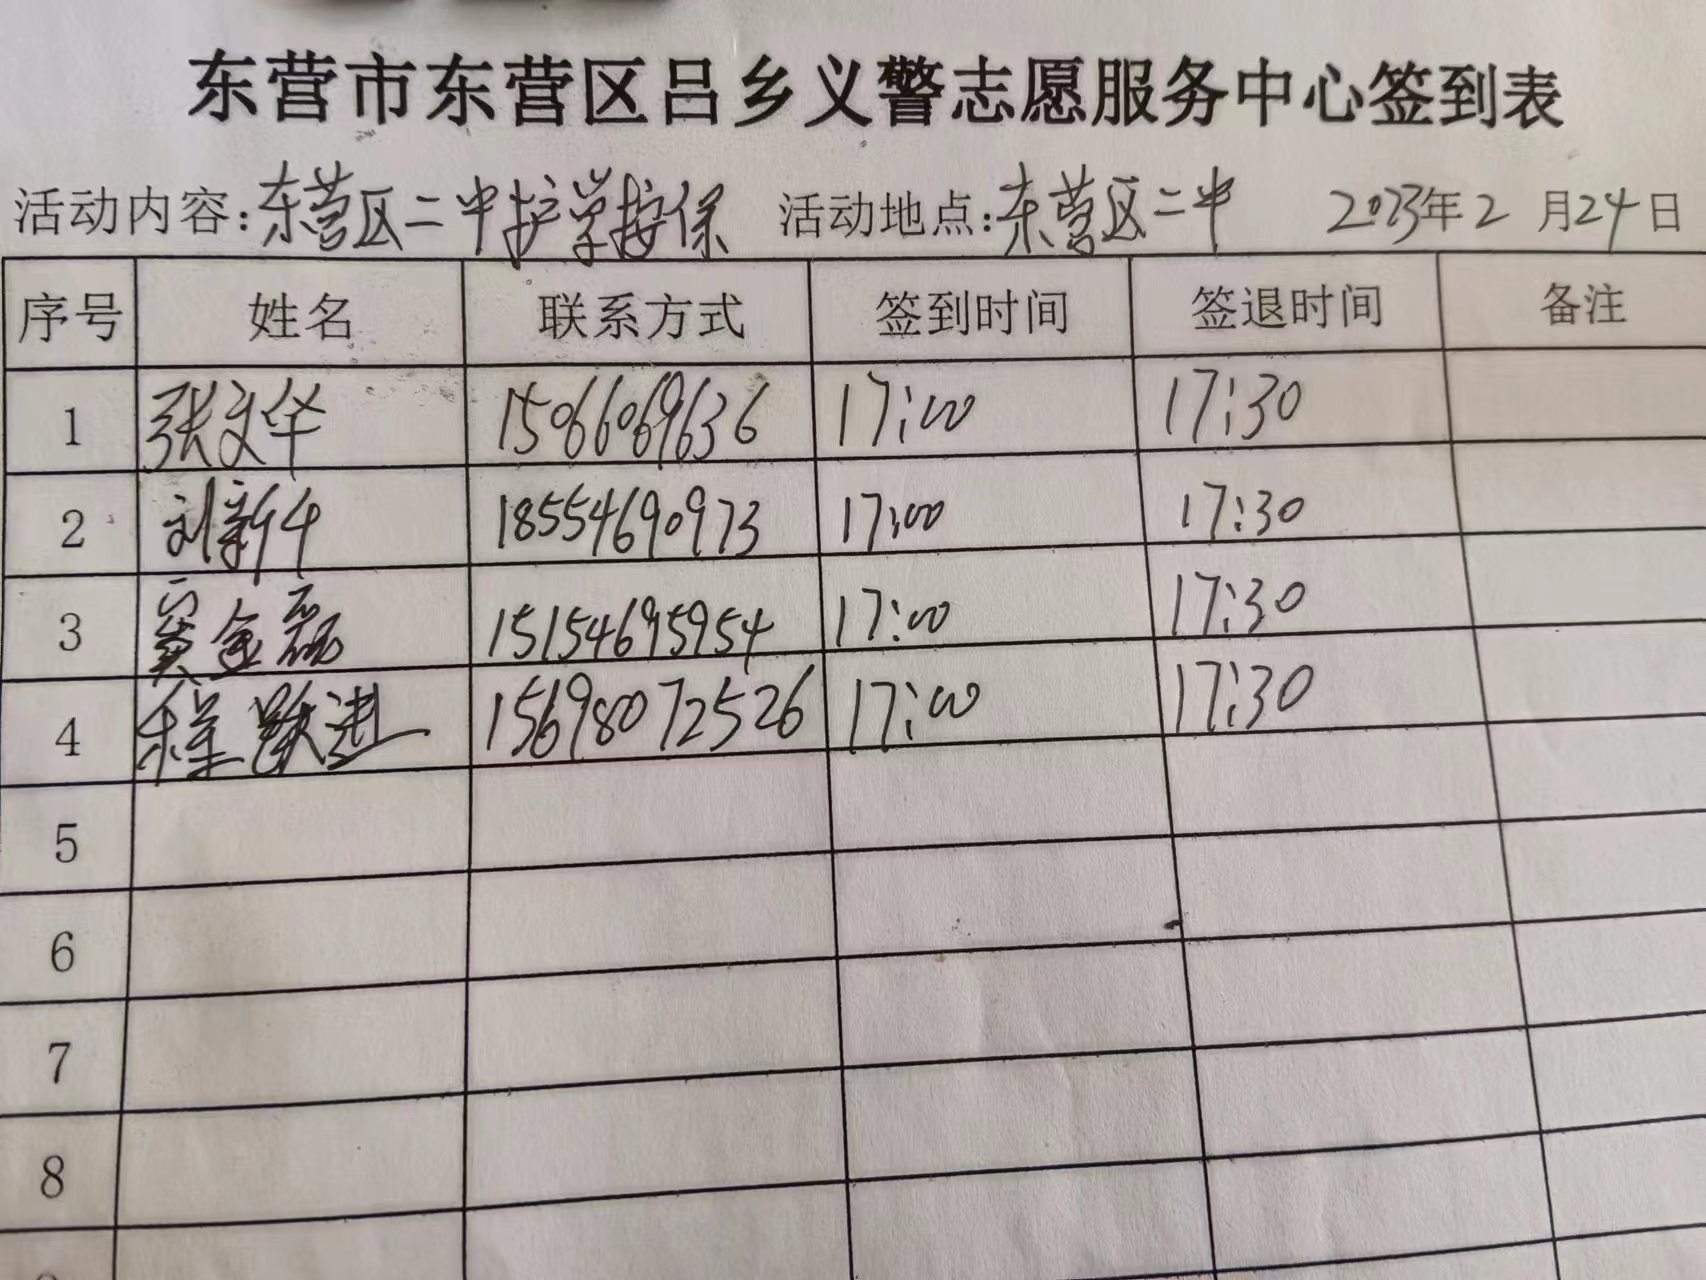 东营市东营区吕乡义警志愿服务中心签到表
活动内容:东营区二中护学安保 活动地点:东营区二中 2023年2月24日
序号 姓名 联系方式 签到时间 签退时间 备注
1 张文华 15066069636 17:00 17:30
2 刘新华 18554690973 17:00 17:30
3 窦金磊 15154695954 17:00 17:30
4 程跃进 15698072526 17:00 17:30
5
6
7
8